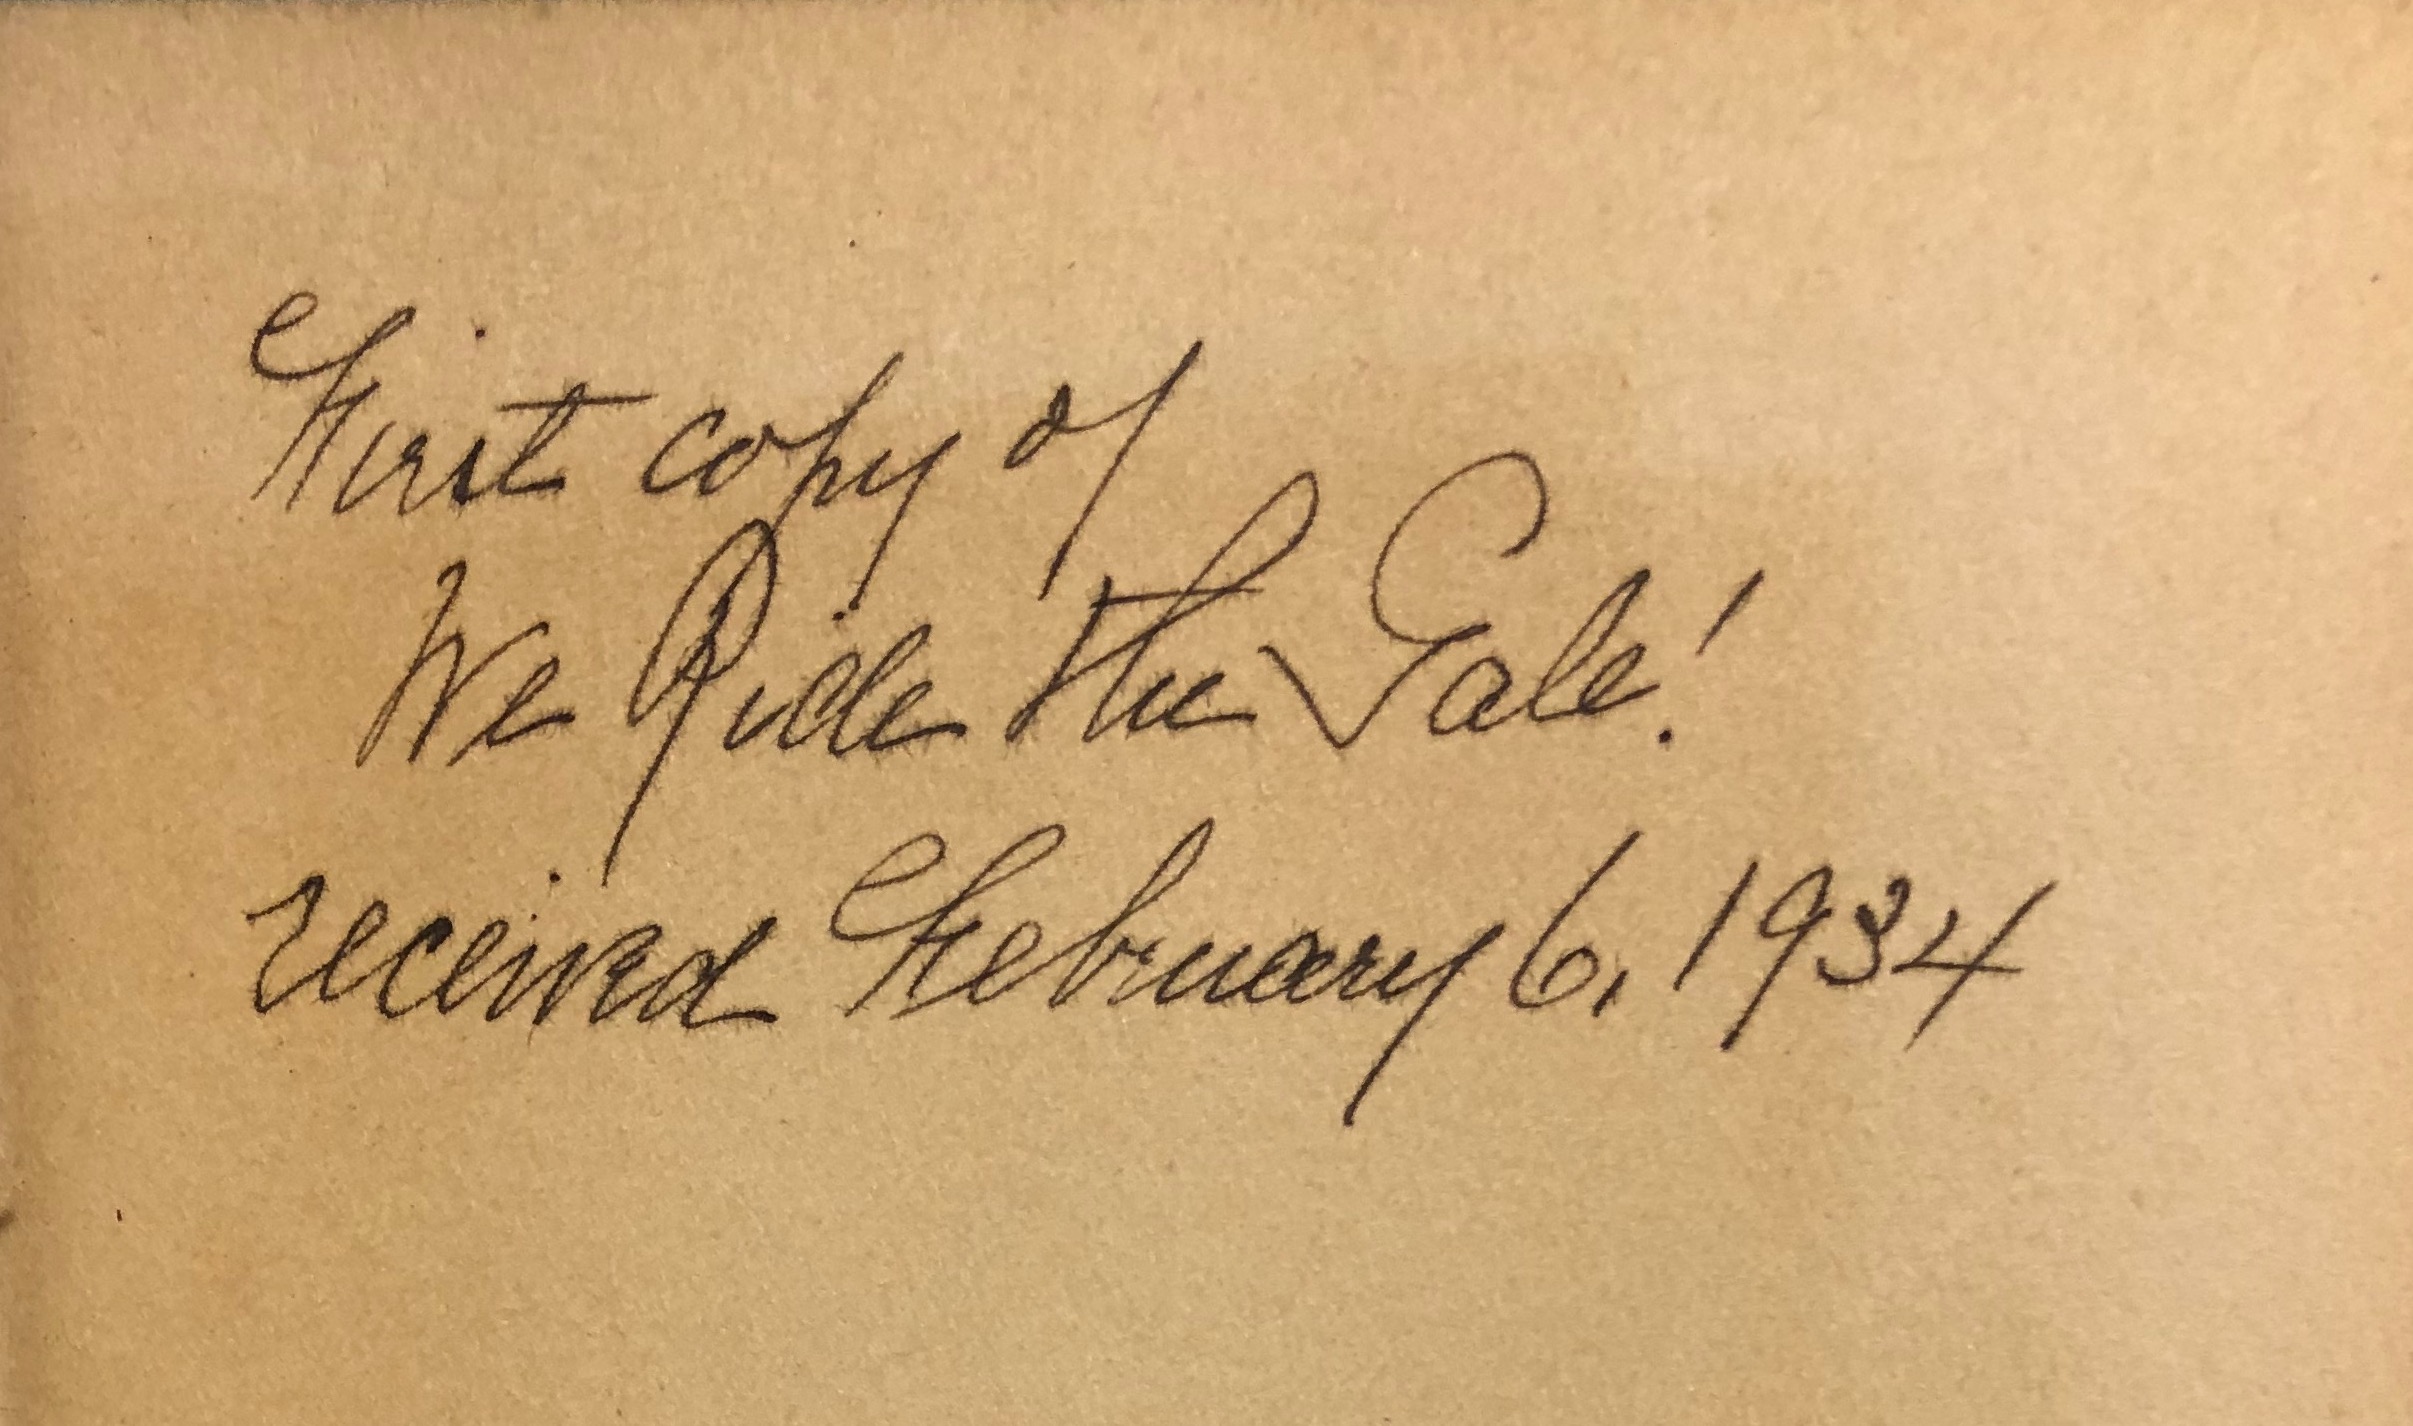 First copy of
We Ride the Gale!
received February 6, 1934